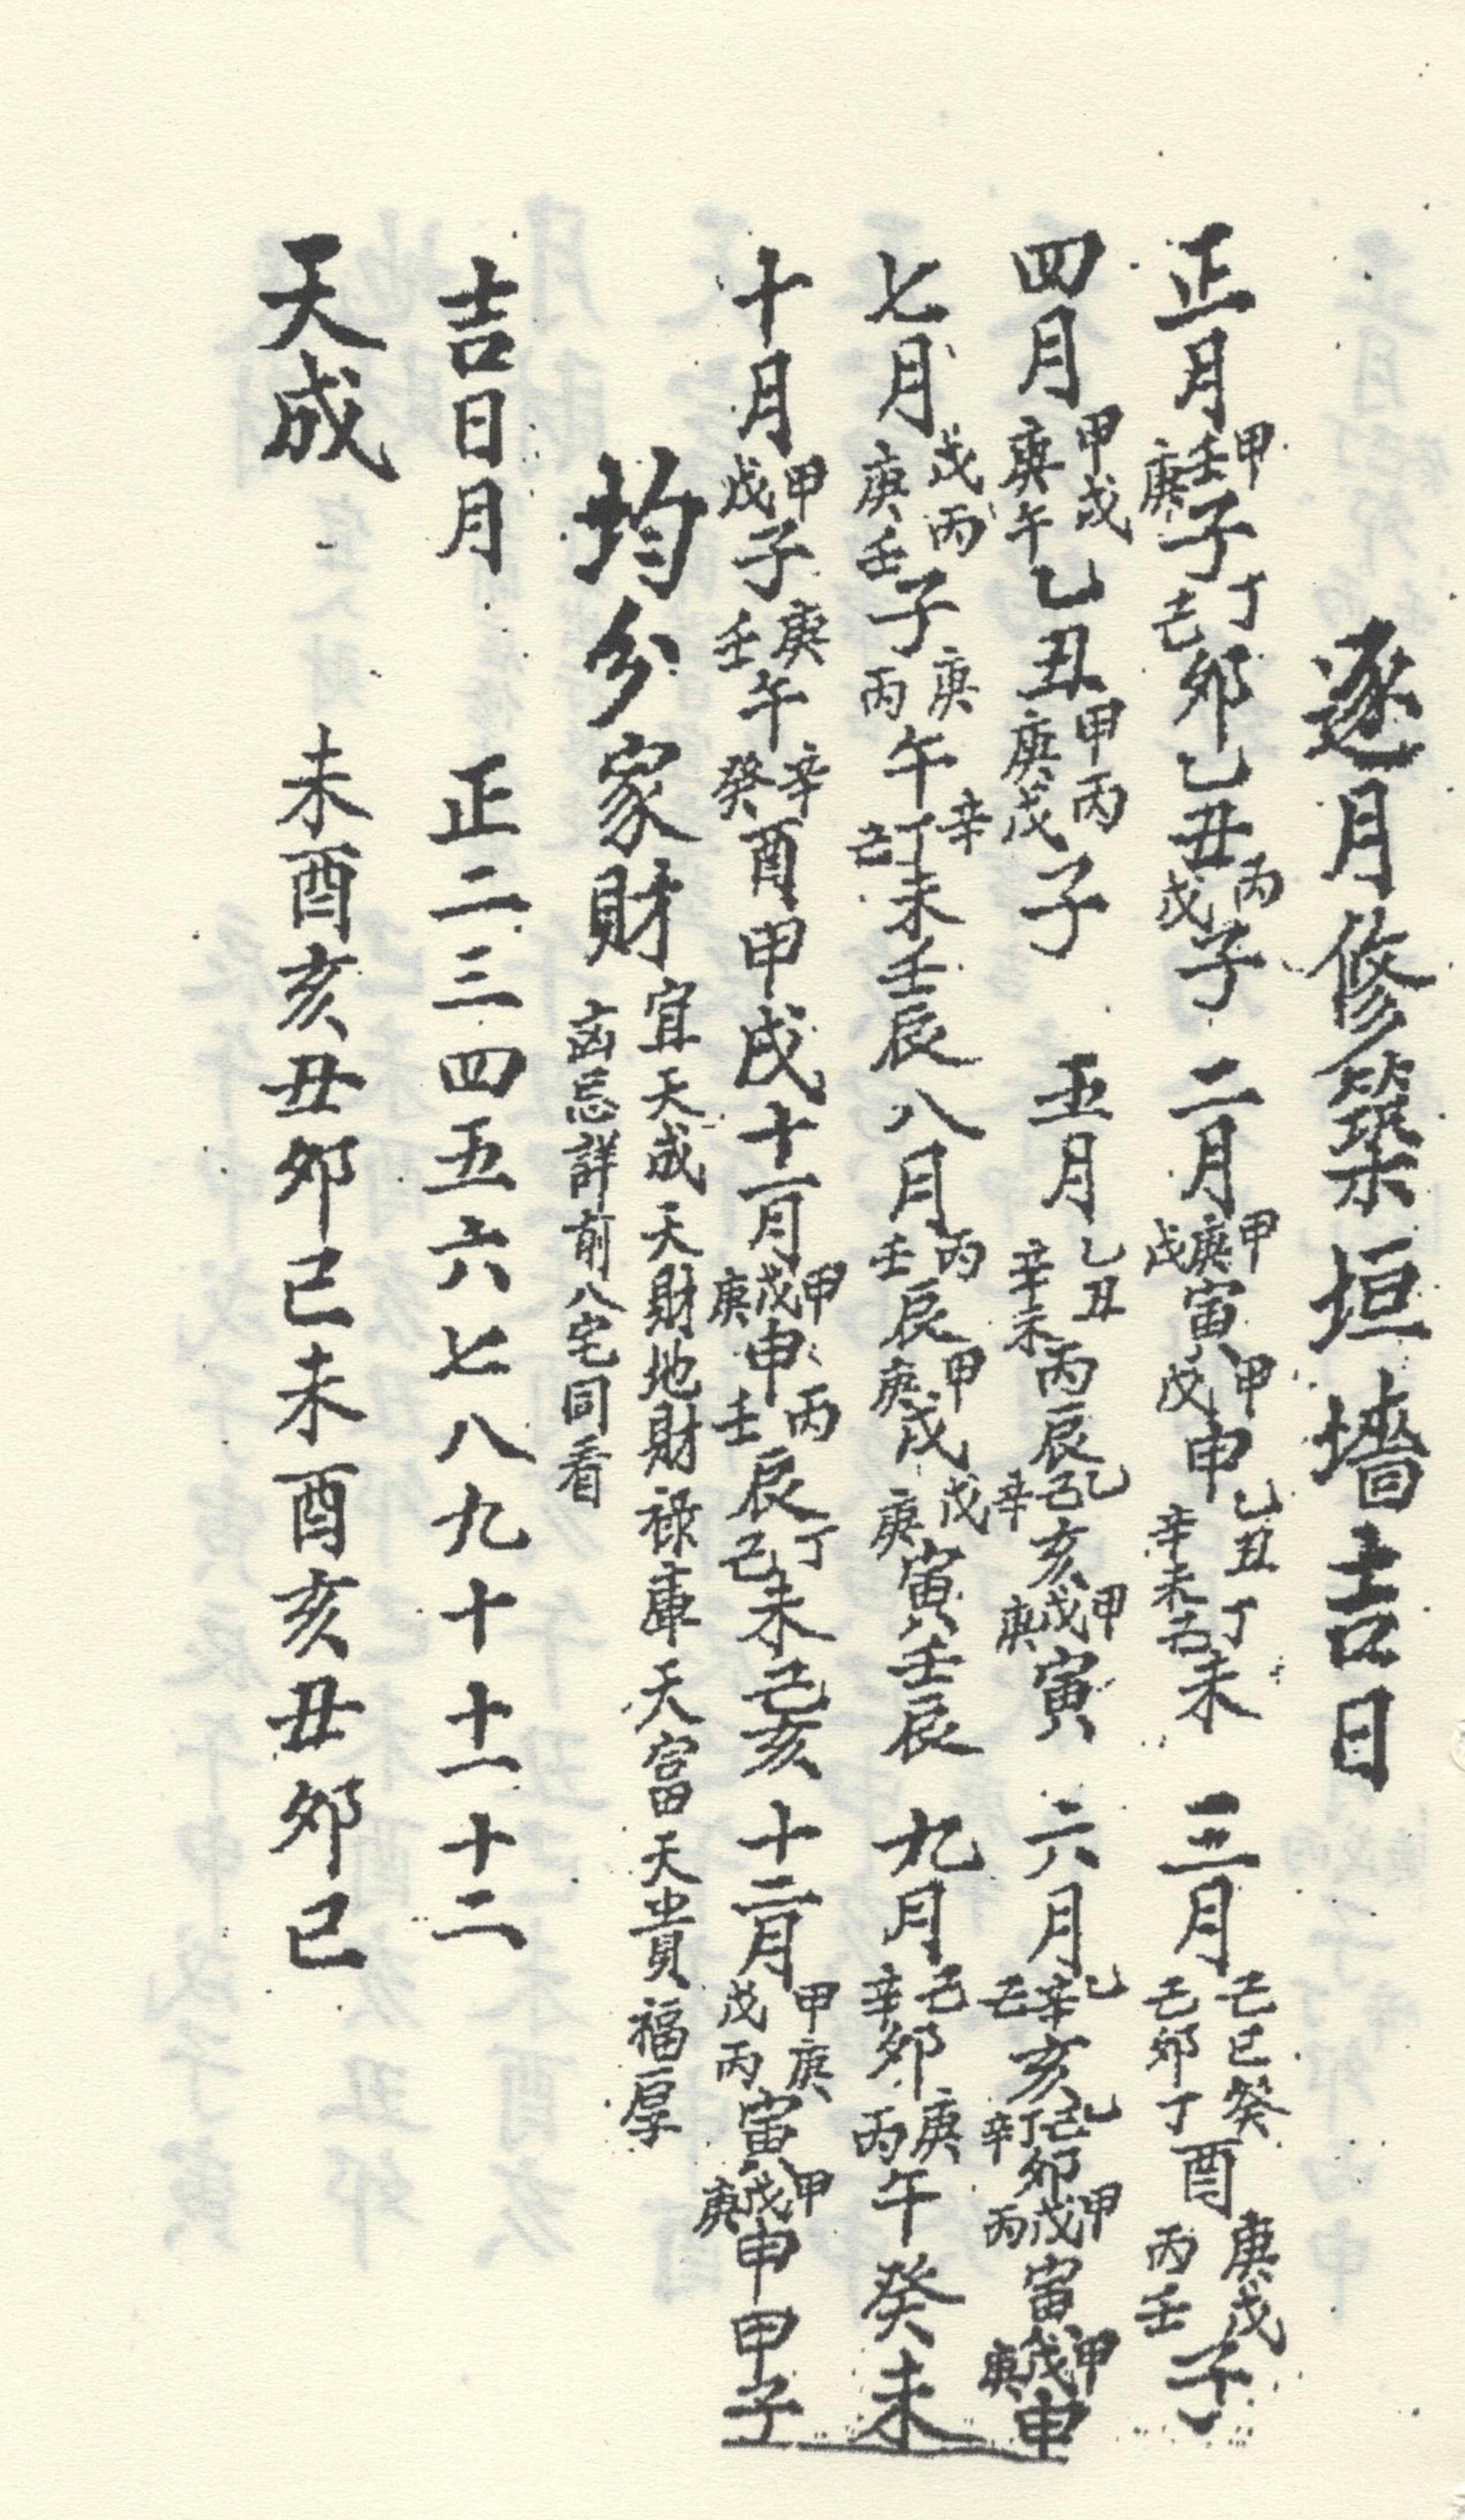 逐月修築垣墻吉日
正月甲壬庚子丁己卯乙丑丙戊子 二月甲庚戊寅甲戊申乙丑辛未丁己未 三月己巳己卯癸丁酉庚戊丙壬子
四月甲戌庚午乙丑甲丙庚戊子 五月乙丑辛未丙辰乙己辛亥甲戊庚寅 六月乙辛己亥乙己丁辛卯甲戊丙寅甲戊庚申
七月戊丙庚壬子庚丙午辛丁己未壬辰八月丙壬辰甲庚戌戊庚寅壬辰 九月己辛卯庚丙午癸未
十月甲戊子庚壬午辛癸酉甲戌十一月甲戊庚申丙壬辰丁己未己亥 十二月甲庚戊丙寅甲戊庚申甲子
均分家財宜天成天財地財祿庫天富天貴福厚
凶忌詳前八宅同看
吉日月 正二三四五六七八九十十一十二
天成 未酉亥丑卯巳未酉亥丑卯巳